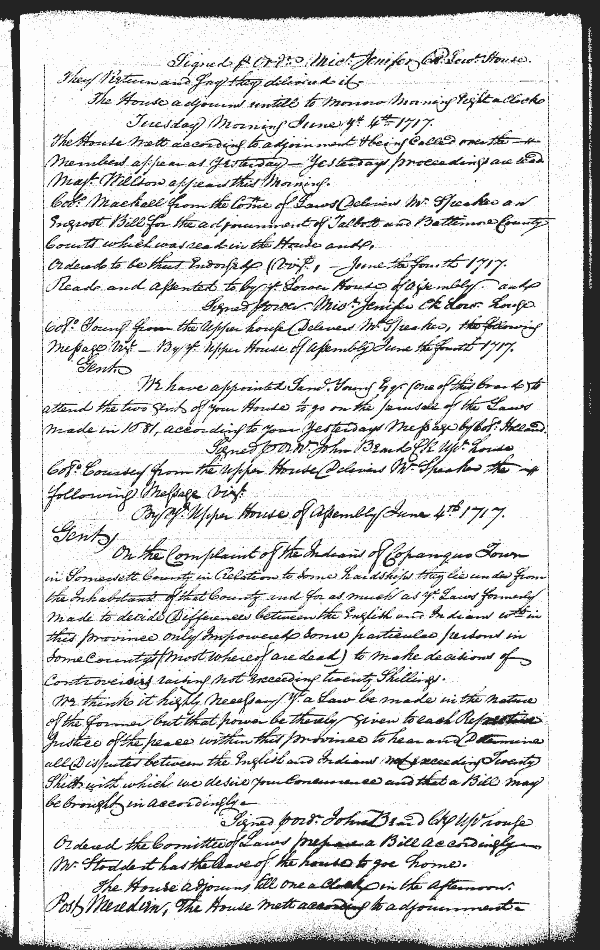 Signed p Ordr. Mich. Jenifer Ck Lowr. House.
They Return and Say they delivered it.
The House adjourns untill to Morrow Morning Eight a Clock
Tuesday Morning June ye. 4th 1717.
The House mett according to adjournment & being Called over the
Members appear as Yesterday — Yesterdays proceedings are read
Majr. Willson appears this Morning.
Colo. Mackall from the Comte of Laws Delivers Mr. Speaker an
Engrost Bill for the adjournment of Talbott and Baltemore County
Courts which was read in the House and
Ordered to be thus Endorsed (Vizt. — June the fourth 1717.
Read and assented to by ye Lower House of Assembly. and
Signed p Ordr. Mich. Jenifer Ck Lowr. house
Colo. Young from the Upper house Delivers Mr. Speaker, the following
Message Vizt — By ye. Upper House of Assembly June the fourth 1717.
Gent.
We have appointed Saml. Young Esqr. (one of this board) to
attend the two Gent. of your House to go on the perusall of the Laws
made in 1681, according to your Yesterdays Message by Colo. Holland.
Signed p Ordr. John Beard Ck Upr. house
Colo. Coursey from the Upper House Delivers Mr. Speaker the
following Message Vizt.
By ye. Upper House of Assembly June 4th 1717.
Gent.
On the Complaint of the Indians of Copangue Town
in Somersett County in Relation to Some hardships they lie under from
the Inhabitants of that County and for as much as ye. Laws formerly
made to decide Differences between the English and Indians within
this province only Impowered Some particular persons in
Some Countys (Most whereof are dead) to make decisions of
Controversies raising not exceeding twenty Shillings.
We think it highly necessary yt a Law be made in the nature
of the former but that power be therein given to each Respective
Justice of the peace within this province to hear and Determine
all Disputes between the English and Indians not exceeding Twenty
Shills. with which we desire your Concurrence and that a Bill may
be brought in accordingly
Signed p Ordr. John Beard Ck Upr house
Ordered the Comittee of Laws prepare a Bill accordingly
Mr. Stoddert has the leave of the house to goe home.
The House adjourns till one a Clock in the afternoon.
Post Meredim, The House mett according to adjournment